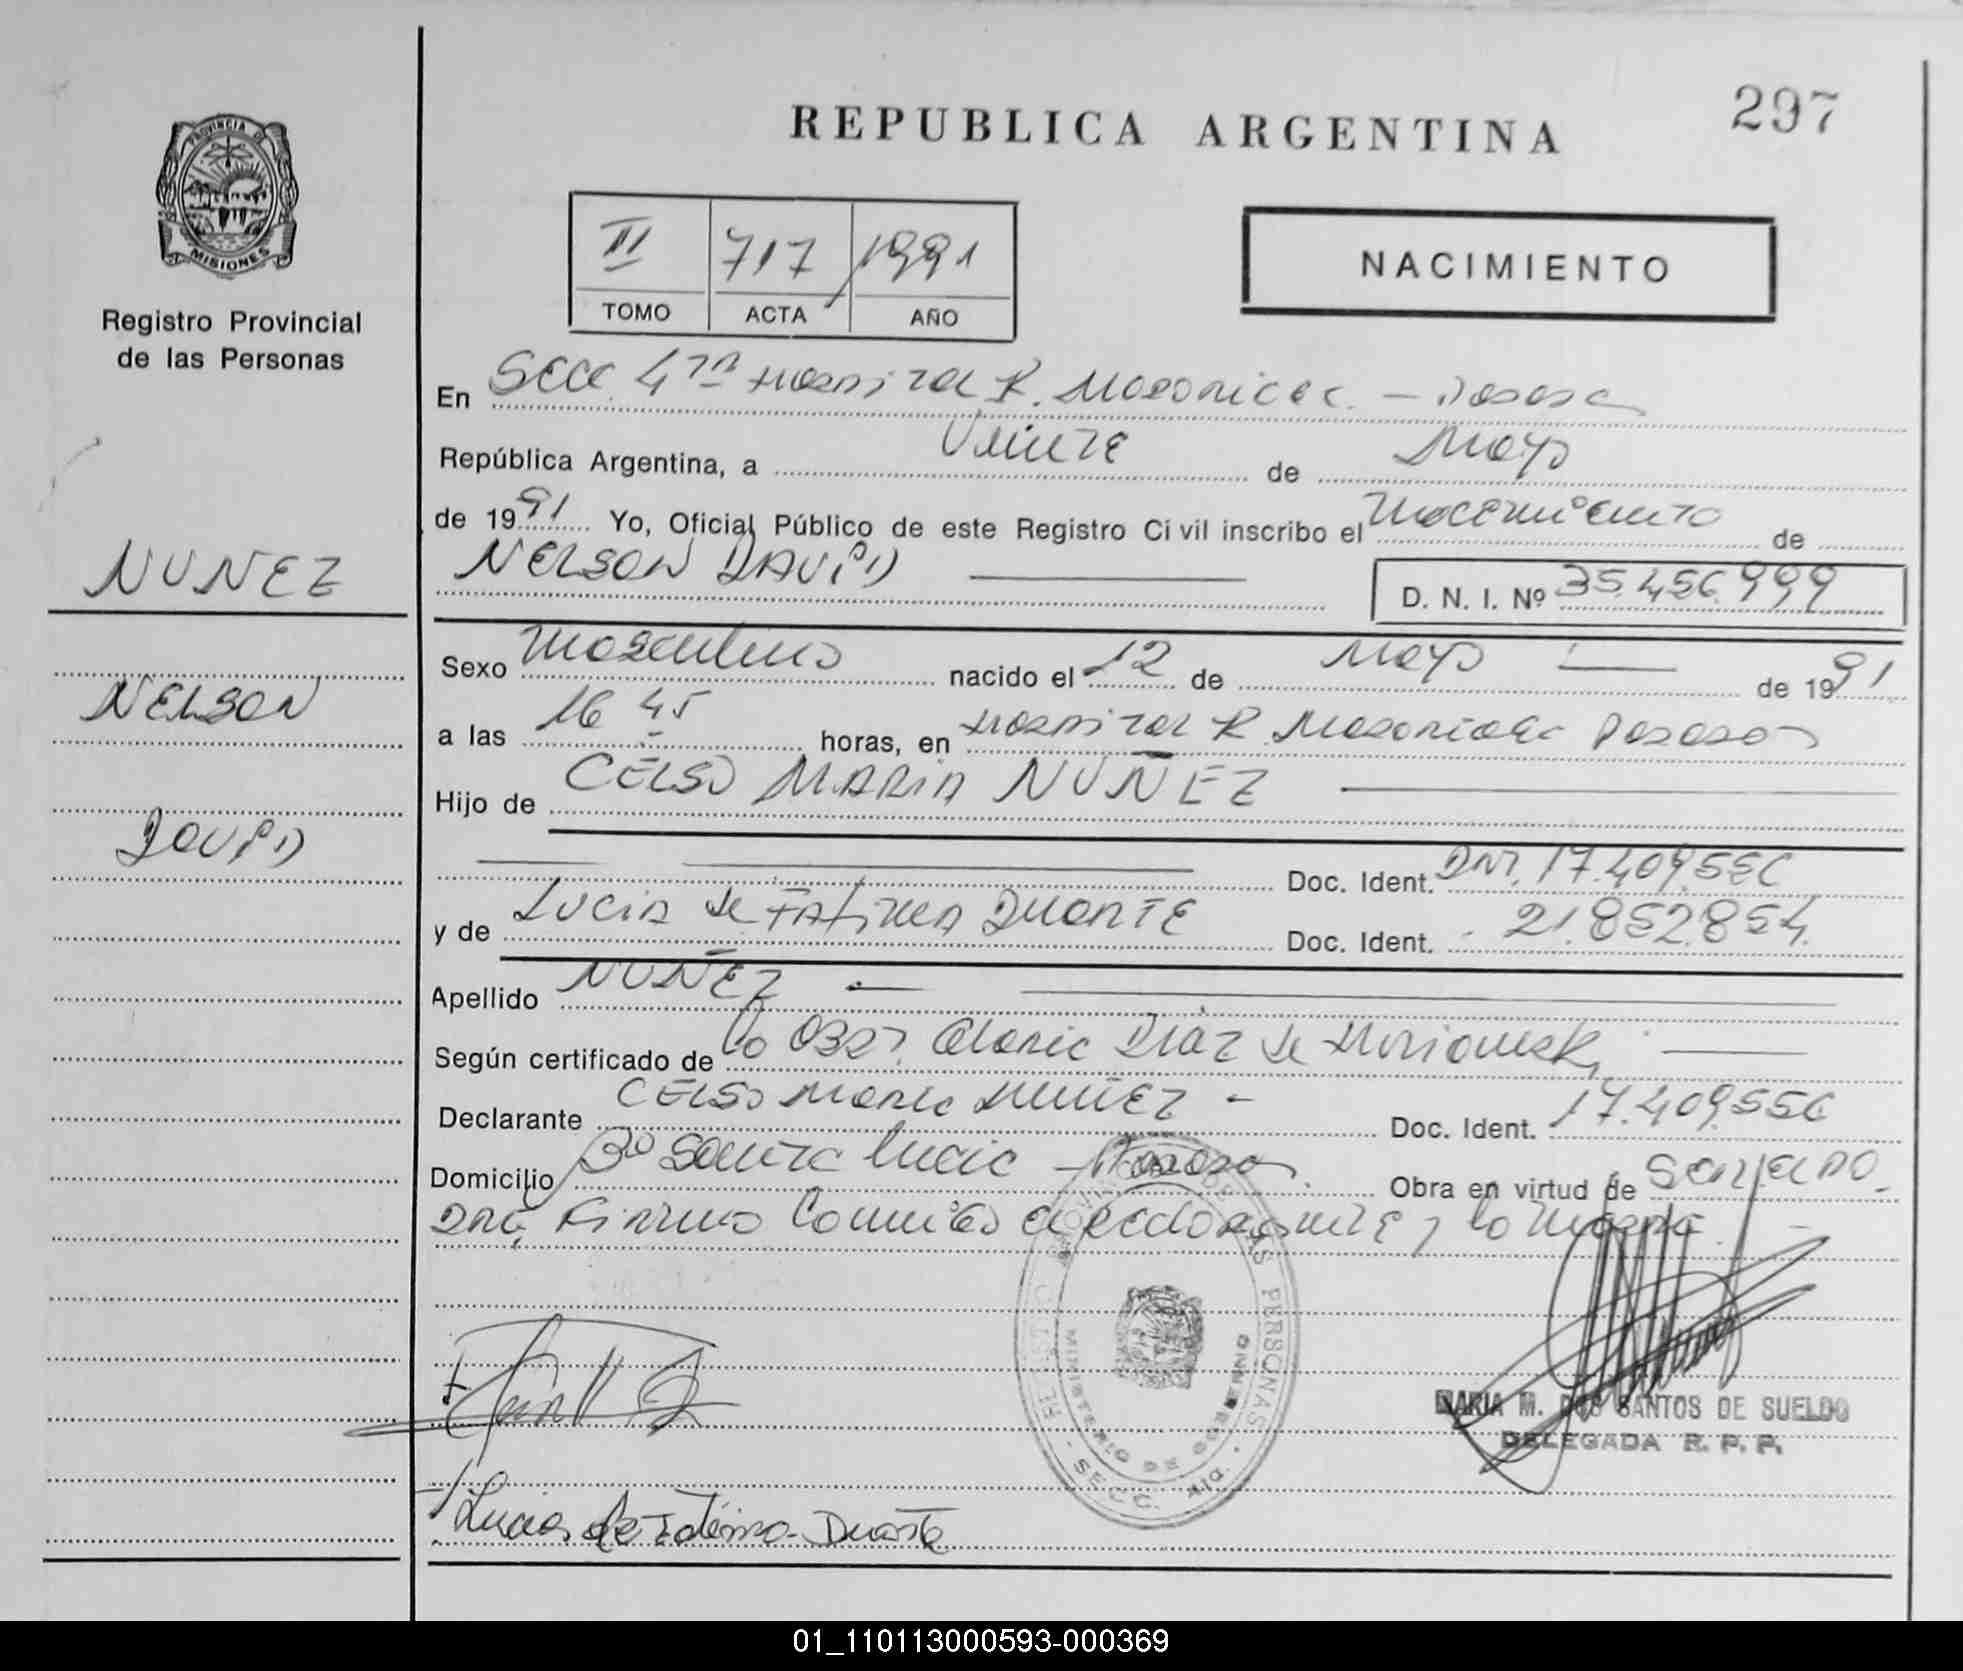 REPUBLICA ARGENTINA
297
PROVINCIA DE
MISIONES
Registro Provincial
de las Personas
II 717 1991
TOMO ACTA AÑO
NACIMIENTO
En Secc. 4ta Hospital R. Madariaga - Posadas
República Argentina, a Veinte de Mayo
de 1991 Yo, Oficial Público de este Registro Civil inscribo el Nacimiento de
NELSON DAVID
D. N. I. Nº 35.456.999
NUNEZ
NELSON
DAVID
Sexo Masculino nacido el 12 de Mayo de 1991
a las 16 45 horas, en Hospital R. Madariaga Posadas
Hijo de CELSO MARIA NUÑEZ
Doc. Ident. DNI. 17.409.556
y de LUCIA de FATIMA DUARTE Doc. Ident. 21.852.854.
Apellido NUÑEZ
Según certificado de la Obst. Gloria Díaz de
Declarante CELSO Maria NUÑEZ - Doc. Ident. 17.409.556
Domicilio Bº Santa Lucia - Posadas. Obra en virtud de
Firman el declarante y la madre.
REGISTRO PROVINCIAL DE LAS PERSONAS
MINISTERIO DE GOBIERNO
- SECC. 4ta. -
MARIA M. DOS SANTOS DE SUELDO
DELEGADA R. P. P.
Lucia de Fátima Duarte
01_110113000593-000369